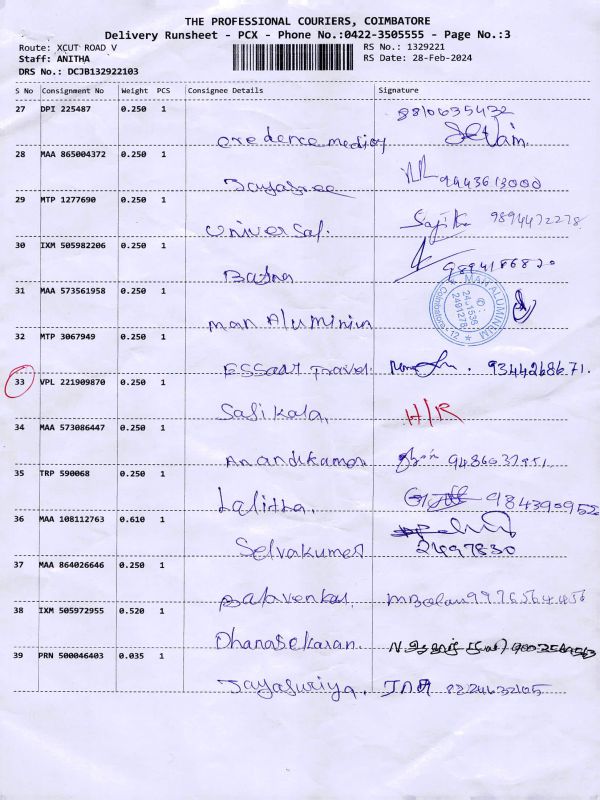 THE PROFESSIONAL COURIERS, COIMBATORE
Delivery Runsheet - PCX - Phone No.:0422-3505555 - Page No.:3
Route: XCUT ROAD V RS No.: 1329221
Staff: ANITHA RS Date: 28-Feb-2024
DRS No.: DCJB132922103
S No Consignment No Weight PCS Consignee Details Signature
27 DPI 225487 0.250 1 8810635432
credence medicy Selvam.
28 MAA 865004372 0.250 1
Jayasree 9443613000
29 MTP 1277690 0.250 1
Universal. Sajitha 9894472278
30 IXM 505982206 0.250 1
9894186820
31 MAA 573561958 0.250 1 MAN ALUMINIUM
Man Aluminium Coimbatore-12
32 MTP 3067949 0.250 1
Essaar Travel. 9344268671.
33 VPL 221909870 0.250 1
Sasikala, H/R
34 MAA 573086447 0.250 1
9486037951
35 TRP 590068 0.250 1
Lalitha. 984390952
36 MAA 108112763 0.610 1
Selvakumar 2497830
37 MAA 864026646 0.250 1
38 IXM 505972955 0.520 1
Dhanasekaran.
39 PRN 500046403 0.035 1
Jayasuriya. 8224632105